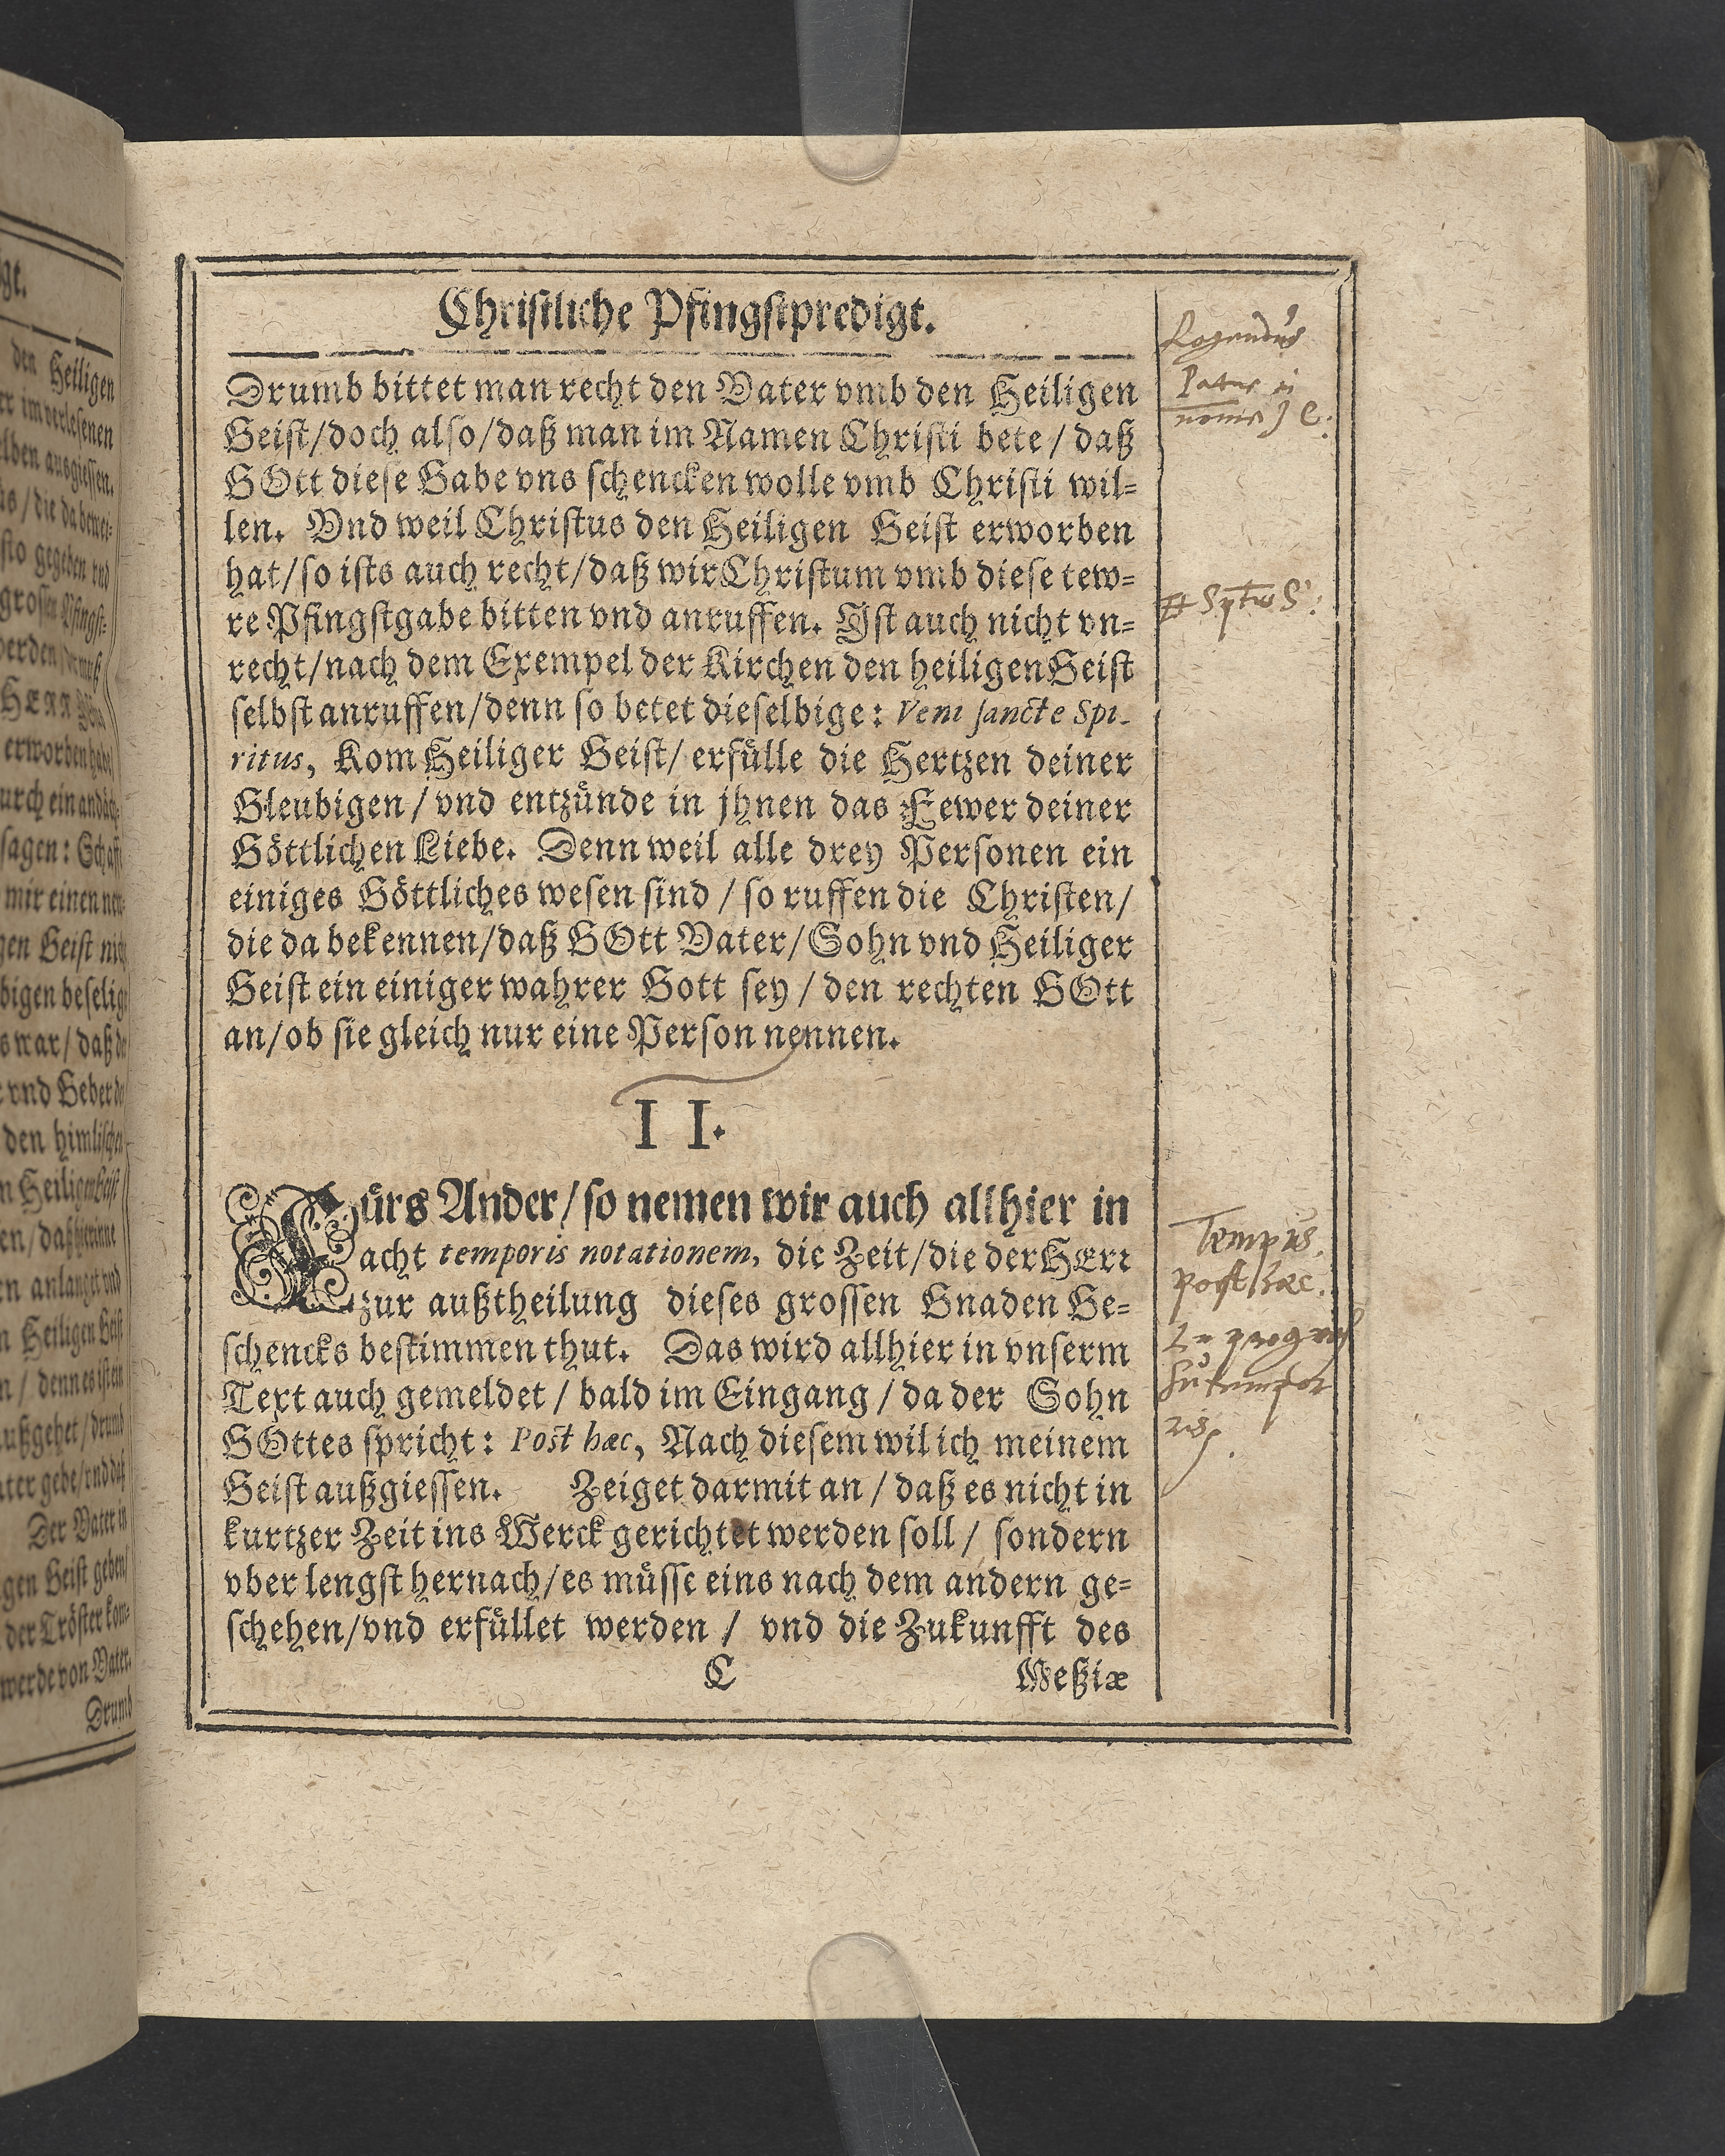 Christliche Pfingstpredigt.
Drumb bittet man recht den Vater vmb den Heiligen
Geist/doch also/daß man im Namen Christi bete/daß
GOtt diese Gabe vns schencken wolle vmb Christi wil⸗
len. Vnd weil Christus den Heiligen Geist erworben
hat/so ists auch recht/daß wir Christum vmb diese tew⸗
re Pfingstgabe bitten vnd anruffen. Ist auch nicht vn⸗
recht/nach dem Exempel der Kirchen den heiligen Geist
selbst anruffen/denn so betet dieselbige: Veni sancte Spi-
ritus, Kom Heiliger Geist/erfülle die Hertzen deiner
Gleubigen/vnd entzünde in jhnen das Fewer deiner
Göttlichen Liebe. Denn weil alle drey Personen ein
einiges Göttliches wesen sind/so ruffen die Christen/
die da bekennen/daß GOtt Vater/Sohn vnd Heiliger
Geist ein einiger wahrer Gott sey/den rechten GOtt
an/ob sie gleich nur eine Person nennen.
II.
Fürs Ander/so nemen wir auch allhier in
acht temporis notationem, die Zeit/die der HErr
zur außtheilung dieses grossen Gnaden Ge⸗
schencks bestimmen thut. Das wird allhier in vnserm
Text auch gemeldet/bald im Eingang/da der Sohn
GOttes spricht: Post hæc, Nach diesem wil ich meinem
Geist außgiessen. Zeiget darmit an/daß es nicht in
kurtzer Zeit ins Werck gerichtet werden soll/sondern
vber lengst hernach/es müsse eins nach dem andern ge⸗
schehen/vnd erfüllet werden/vnd die Zukunfft des
C Meßiæ
Tempus.
post hæc.